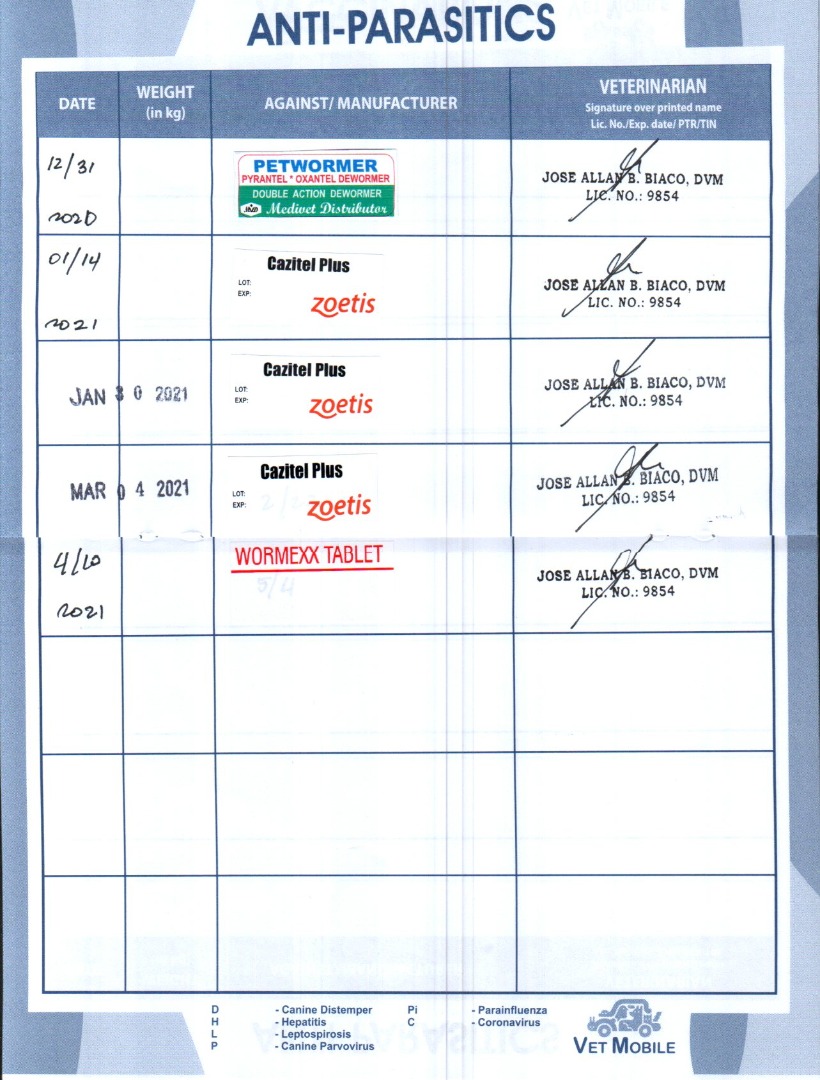 ANTI-PARASITICS
DATE
WEIGHT
(in kg)
AGAINST/ MANUFACTURER
VETERINARIAN
Signature over printed name
Lic. No./Exp. date/ PTR/TIN
12/31
2020
PETWORMER
PYRANTEL * OXANTEL DEWORMER
DOUBLE ACTION DEWORMER
Medivet Distributor
JOSE ALLAN B. BIACO, DVM
LIC. NO.: 9854
01/14
2021
Cazitel Plus
LOT:
EXP:
zoetis
JOSE ALLAN B. BIACO, DVM
LIC. NO.: 9854
JAN 30 2021
Cazitel Plus
LOT:
EXP:
zoetis
JOSE ALLAN B. BIACO, DVM
LIC. NO.: 9854
MAR 04 2021
Cazitel Plus
LOT:
EXP:
zoetis
JOSE ALLAN B. BIACO, DVM
LIC. NO.: 9854
4/10
2021
WORMEXX TABLET
5/4
JOSE ALLAN B. BIACO, DVM
LIC. NO.: 9854
D - Canine Distemper
H - Hepatitis
L - Leptospirosis
P - Canine Parvovirus
Pi - Parainfluenza
C - Coronavirus
VET MOBILE